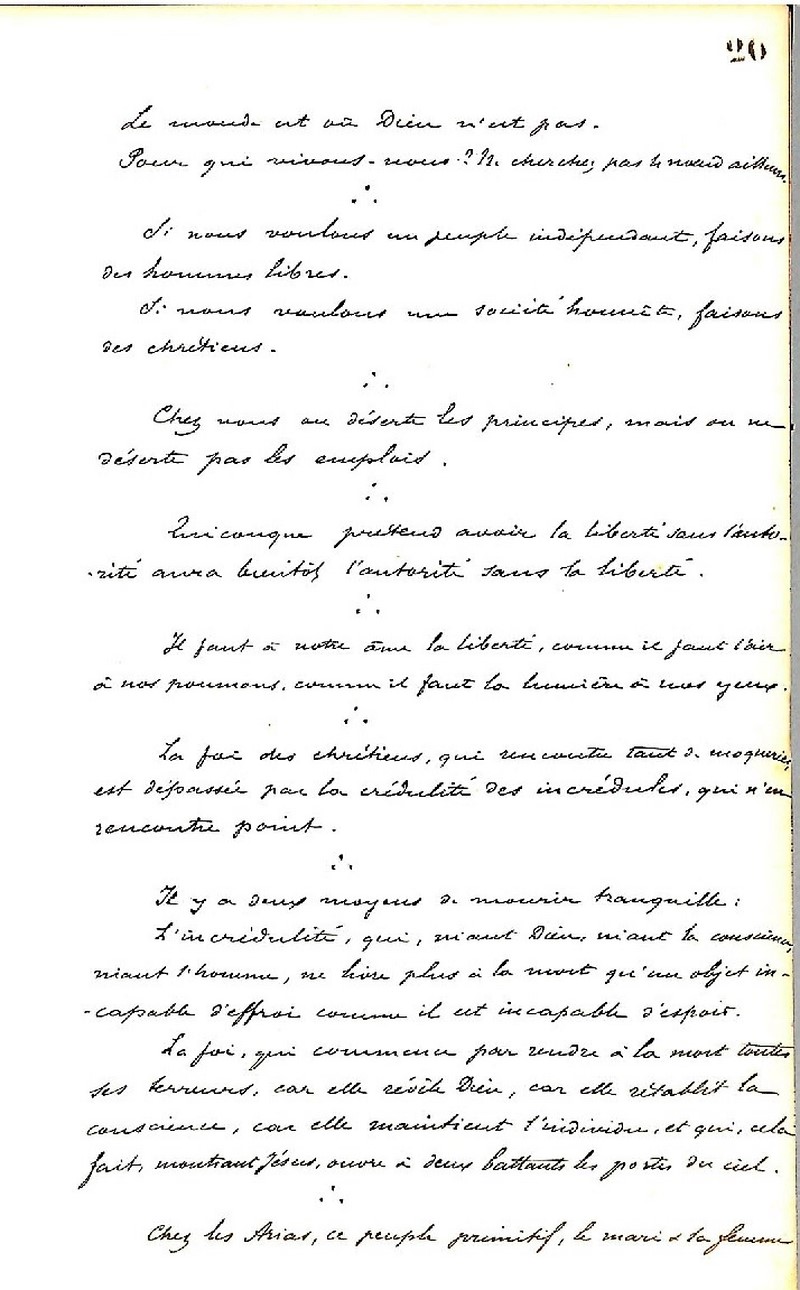 20
Le monde est où Dieu n'est pas.
Pour qui vivons-nous? Ne cherchez pas le nœud ailleurs.
∴
Si nous voulons un peuple indépendant, faisons
des hommes libres.
Si nous voulons une société honnête, faisons
des chrétiens.
∴
Chez nous on déserte les principes, mais on ne
déserte pas les emplois.
∴
Quiconque prétend avoir la liberté sans l'auto-
-rité aura bientôt l'autorité sans la liberté.
∴
Il faut à notre âme la liberté, comme il faut l'air
à nos poumons, comme il faut la lumière à nos yeux.
∴
La foi des chrétiens, qui rencontre tant de moqueries,
est dépassée par la crédulité des incrédules, qui n'en
rencontre point.
∴
Il y a deux moyens de mourir tranquille:
L'incrédulité, qui, niant Dieu, niant la conscience,
niant l'homme, ne livre plus à la mort qu'un objet in-
-capable d'effroi comme il est incapable d'espoir.
La foi, qui commence par rendre à la mort toutes
ses terreurs, car elle révèle Dieu, car elle rétablit la
conscience, car elle maintient l'individu, et qui, cela
fait, montrant Jésus, ouvre à deux battants les portes du ciel.
∴
Chez les Arias, ce peuple primitif, le mari & la femme